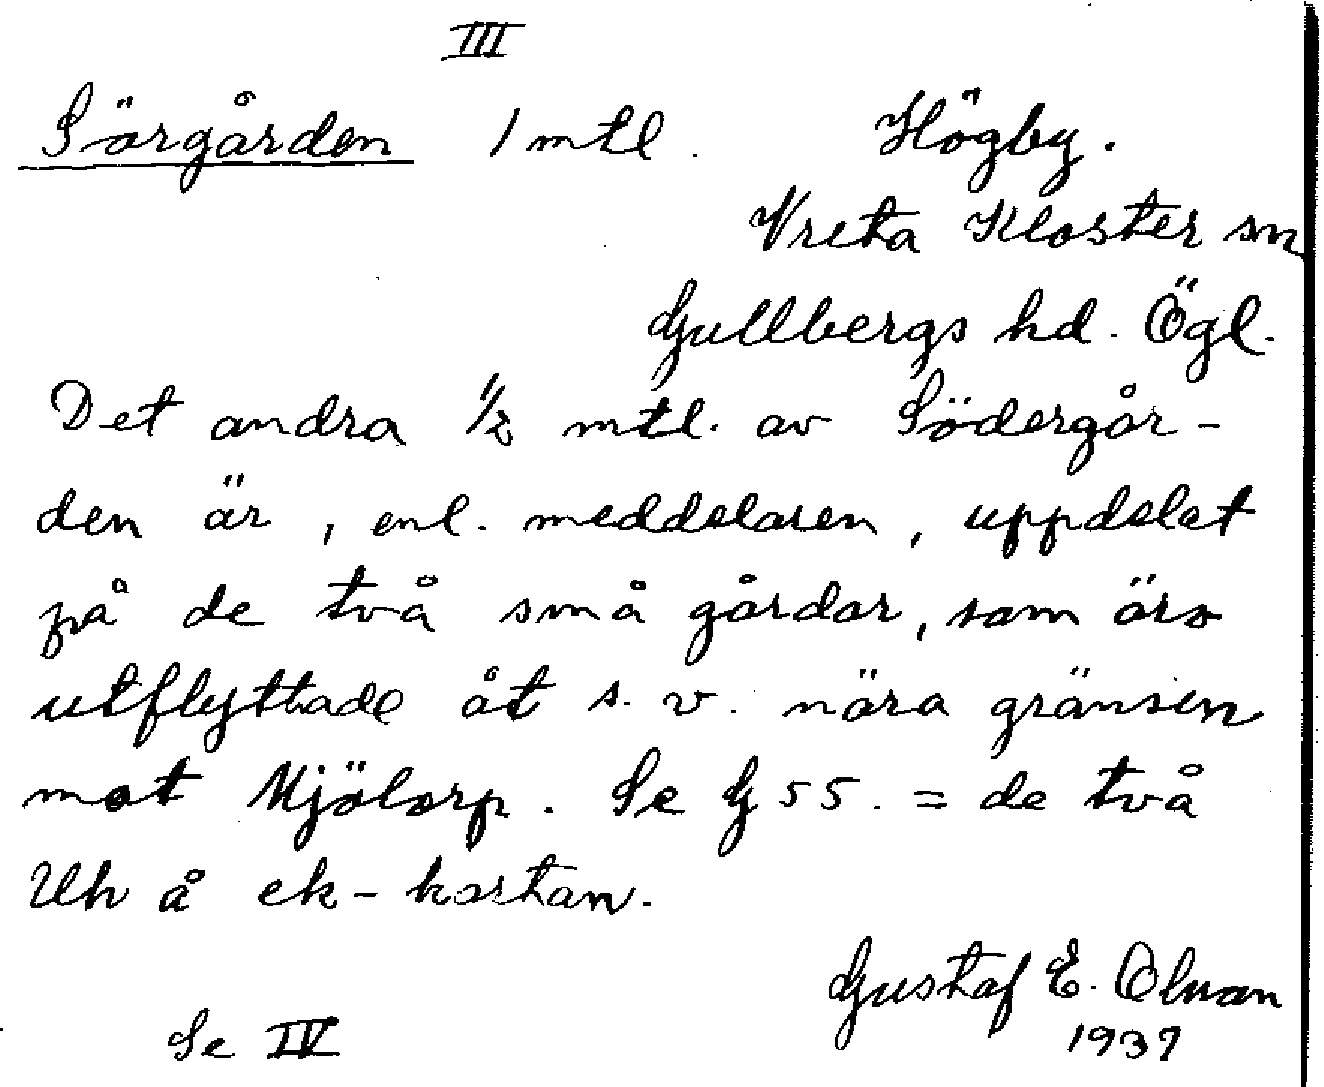 III
Sörgården 1 mtl. Högby.
Vreta Kloster sn
Gullbergs hd. Ögl.
Det andra 1/2 mtl. av Södergår-
den är, enl. meddelaren, uppdelat
på de två små gårdar, som äro
utflyttade åt s. v. nära gränsen
mot Mjölorp. Se G 55. = de två
Uh å ek-kartan.
Gustaf E. Olson
1937
Se IV